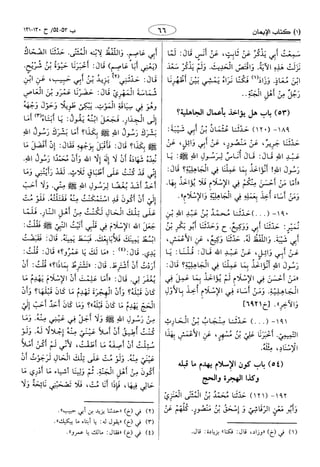 (١) كتاب الإيمان
٦٦
ب ٥٢-٥٤/ ح ١٢٠-١٢١
سمعت أبي يذكر عن ثابت، عن أنس قال: لما
الآية. واقتص الحديث. ولم يذكر سعد
ابن معاذ. وزاد: فكنا نراه يمشي بين أظهرنا
رجل من أهل الجنة.
(٥٣) باب هل يؤاخذ بأعمال الجاهلية؟
١٨٩- (١٢٠) حدثنا عثمان بن أبي شيبة:
حدثنا جرير، عن منصور، عن أبي وائل، عن
عبد الله قال: قال أناس لرسول الله ﷺ: يا
رسول الله! أنؤاخذ بما عملنا في الجاهلية؟ قال:
«أما من أحسن منكم في الإسلام فلا يؤاخذ بها،
ومن أساء أخذ بعمله في الجاهلية والإسلام».
١٩٠- (...) حدثنا محمد بن عبد الله بن
نمير: حدثنا أبي ووكيع. ح وحدثنا أبو بكر بن
أبي شيبة، واللفظ له. حدثنا وكيع، عن الأعمش،
عن أبي وائل، عن عبد الله قال: قلنا: يا
رسول الله! أنؤاخذ بما عملنا في الجاهلية؟ قال:
«من أحسن في الإسلام لم يؤاخذ بما عمل في
الجاهلية. ومن أساء في الإسلام أخذ بالأول
والآخر».
١٩١- (...) حدثنا منجاب بن الحارث
التميمي: أخبرنا علي بن مسهر، عن الأعمش بهذا
الإسناد، مثله.
(٥٤) باب كون الإسلام يهدم ما قبله
وكذا الهجرة والحج
١٩٢- (١٢١) حدثنا محمد بن المثنى العنزي
وأبو معن الرقاشي وإسحق بن منصور. كلهم عن
أبي عاصم. واللفظ لابن المثنى. حدثنا الضحاك
(يعني أبا عاصم) قال: أخبرنا حيوة بن شريح.
قال: حدثني يزيد بن أبي حبيب، عن ابن
شماسة المهري قال: حضرنا عمرو بن العاص
وهو في سياقة الموت. يبكي طويلا وحول وجهه
إلى الجدار. فجعل ابنه يقول: يا أبتاه! أما
بشرك رسول الله ﷺ بكذا؟ أما بشرك رسول الله
ﷺ بكذا؟ قال: فأقبل بوجهه فقال: إن أفضل ما
نعد شهادة أن لا إله إلا الله وأن محمدا رسول الله.
إني قد كنت على أطباق ثلاث. لقد رأيتني وما
أحد أشد بغضا لرسول الله ﷺ مني. ولا أحب
إلي أن أكون قد استمكنت منه فقتلته. فلو مت
على تلك الحال لكنت من أهل النار. فلما
جعل الله الإسلام في قلبي أتيت النبي ﷺ فقلت:
ابسط يمينك فلأبايعك. فبسط يمينه. قال: فقبضت
يدي. قال: «ما لك يا عمرو؟» قال: قلت:
أردت أن أشترط. قال: «تشترط بماذا؟» قلت: أن
يغفر لي. قال: «أما علمت أن الإسلام يهدم ما
كان قبله؟ وأن الهجرة تهدم ما كان قبلها؟ وأن
الحج يهدم ما كان قبله؟» وما كان أحد أحب إلي
من رسول الله ﷺ ولا أجل في عيني منه. وما
كنت أطيق أن أملأ عيني منه إجلالا له. ولو
سئلت أن أصفه ما أطقت. لأني لم أكن أملأ
عيني منه. ولو مت على تلك الحال لرجوت أن
أكون من أهل الجنة. ثم ولينا أشياء ما أدري ما
حالي فيها. فإذا أنا مت، فلا تصحبني نائحة ولا